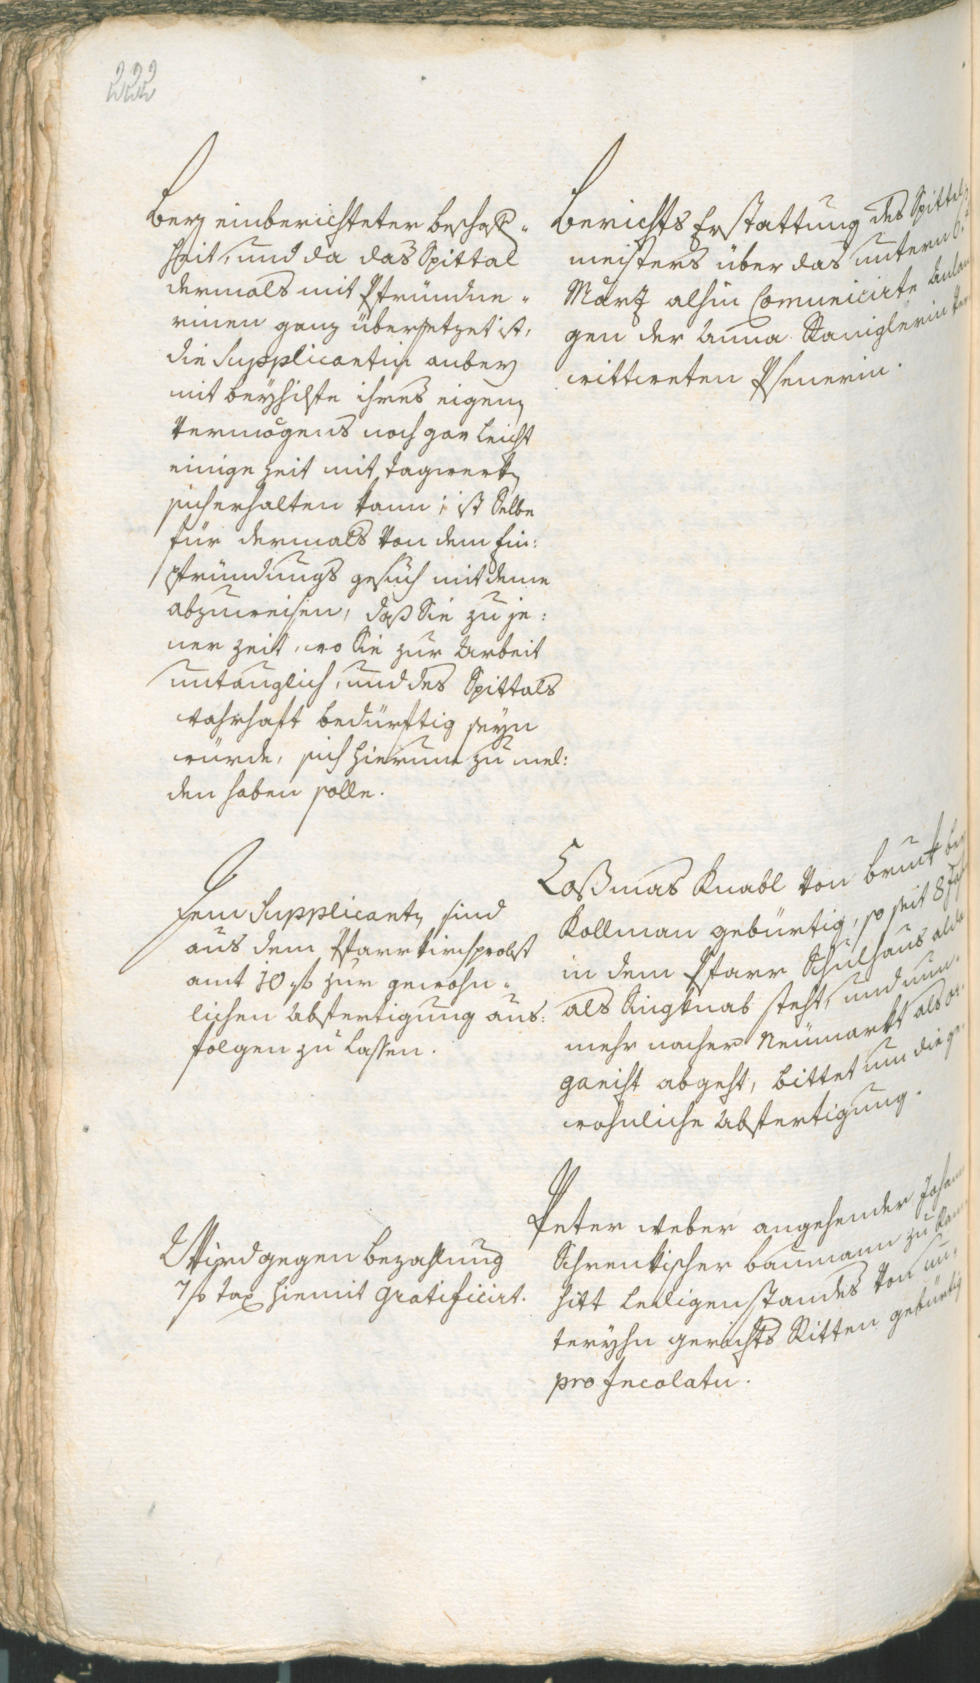 222
Bey einberichteter beschaf„
heit, und da das Spittal
dermals mit Pfründne„
rinen ganz übersetzet ist,
die Supplicantin anbey
mit beyhilfe ihres eigen
vermögens noch gar leicht
einige zeit mit tagwerk
sich erhalten kann; ist Selbe
für dermals von dem Ein:
pfründungs gesuch mit deme
abzuweisen, daß Sie zu je:
ner zeit, wo Sie zur Arbeit
untauglich, und des Spittals
wahrhaft bedürftig seyn
würde, sich hierum zu mel:
den haben solle.
Berichts Erstattung des Spittal
meisters über das untern
Märtz alhin Comunicirte Anlan
gen der Anna Staniglerin
crittreten Pfenerin.
Dem Supplicanten sind
aus dem Pfarrkirchprobst
amt 10 f. zur gewohn„
lichen Abfertigung aus:
folgen zu lassen.
Coßmas Knabl von bruk bey
Kollman gebürtig, so seit 8 Jahr
in dem Pfarr Schulhaus alda
als Singknab steht, und nun„
mehr nacher Neumarkt als or„
ganist abgeht, bittet um die ge„
wohnliche Abfertigung.
Wird gegen bezahlung
7 f. tax hiemit gratificirt.
Peter Weber angehender Johann
Schrenkischer baumann zu
hitt ledigen standes von un„
terÿhn gerichts Ritten gebürtig
pro Incolatu.